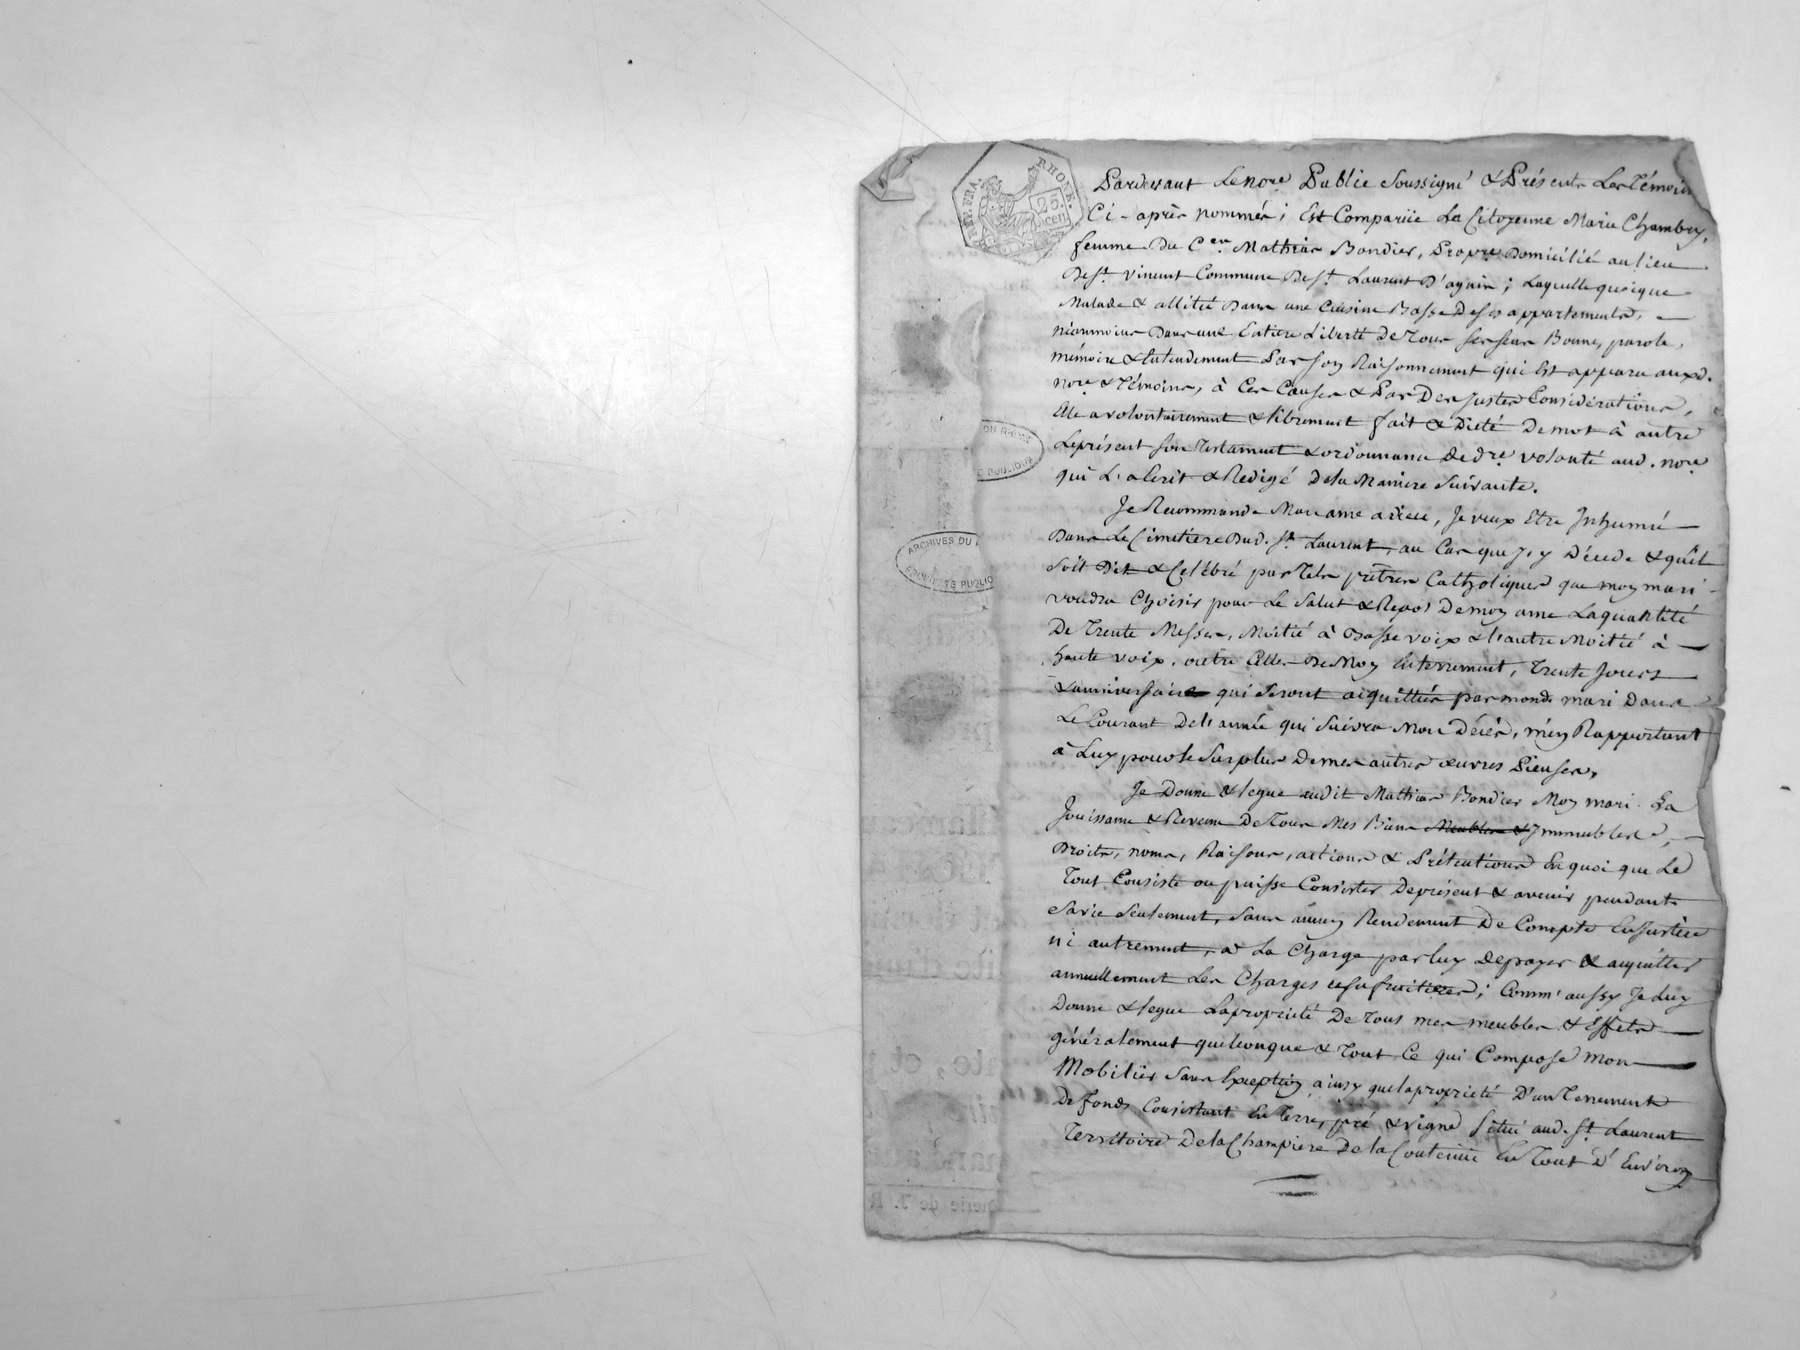 REP. FRA. RHONE.
25 cen
Pardevant Le nore Public Soussigné & Présents Les Témoins
Ci-après nommés; Est Comparüe La Citoyenne Marie Chambry,
femme Du Cen Mathias Bondier, Propre Domicilié au lieu
De St. Vincent Commune De St. Laurent D'agnin; Laquelle quoique
Malade & allitée Dans une Cuisine Basse De ses appartements,
néanmoins Dans une Entiere Liberté De Tous ses sens Bonne, parole,
mémoire & Entendement Par son Raisonnement qui Est apparu auxd.
nore & Témoins, à Ces Causes & Par Des Justes Considérations,
Elle a volontairement & librement fait & Dicté De mot à autre
Le présent son Testament & ordonnance de dre. volonté aud. nore
qui L'a Ecrit & Redigé De la Maniere Suivante.
Je Recommande Mon ame a dieu, Je veux Etre Inhumé
Dans Le Cimitiere Dud. St. Laurent, au Cas que J'y Décede & qu'il
Soit Dit & Celébré par Tels prêtres Catholiques que moy mari
voudra Choisir pour Le Salut & Repos De moy ame La quantité
De Trente Messes, Moitié à Basse voix & l'autre Moitié à
haute voix, outre Celles De Moy Enterrement, Trente Jours
& anniversaire qui Seront aiquittés par mond. mari Dans
Le Courant De l'année qui Suivra Mon Décès, m'en Rapportant
à Luy pour le Surplus De mes autres œuvres Pieuses,
Je Donne & legue audit Mathias Bondier Moy mari La
Jouissance & Revenu De Tous Mes Biens Meubles & Immeubles,
Droits, noms, Raisons, actions & Prétentions En quoi que Le
Tout Consiste ou puisse Consister De présent & avenir pendant
Sa vie Seulement, Sans aucun Rendement De Compte
ni autrement, a La Charge par luy De payer & aiquitter
annuellement Les Charges usufruitieres; Comm'aussy Je Luy
Donne & legue La propriété De Tous mes meubles & Effets
généralement quelconque & Tout Ce qui Compose Mon
Mobilier Sans Exception, ainsy que la propriété D'un Tenement
De fonds Consistant En Terre, pré & vigne Situé aud. St. Laurent
Territoire De la Champiere De la Contenue En Tout D'Environ
ARCHIVES DU
PUBLIQUE